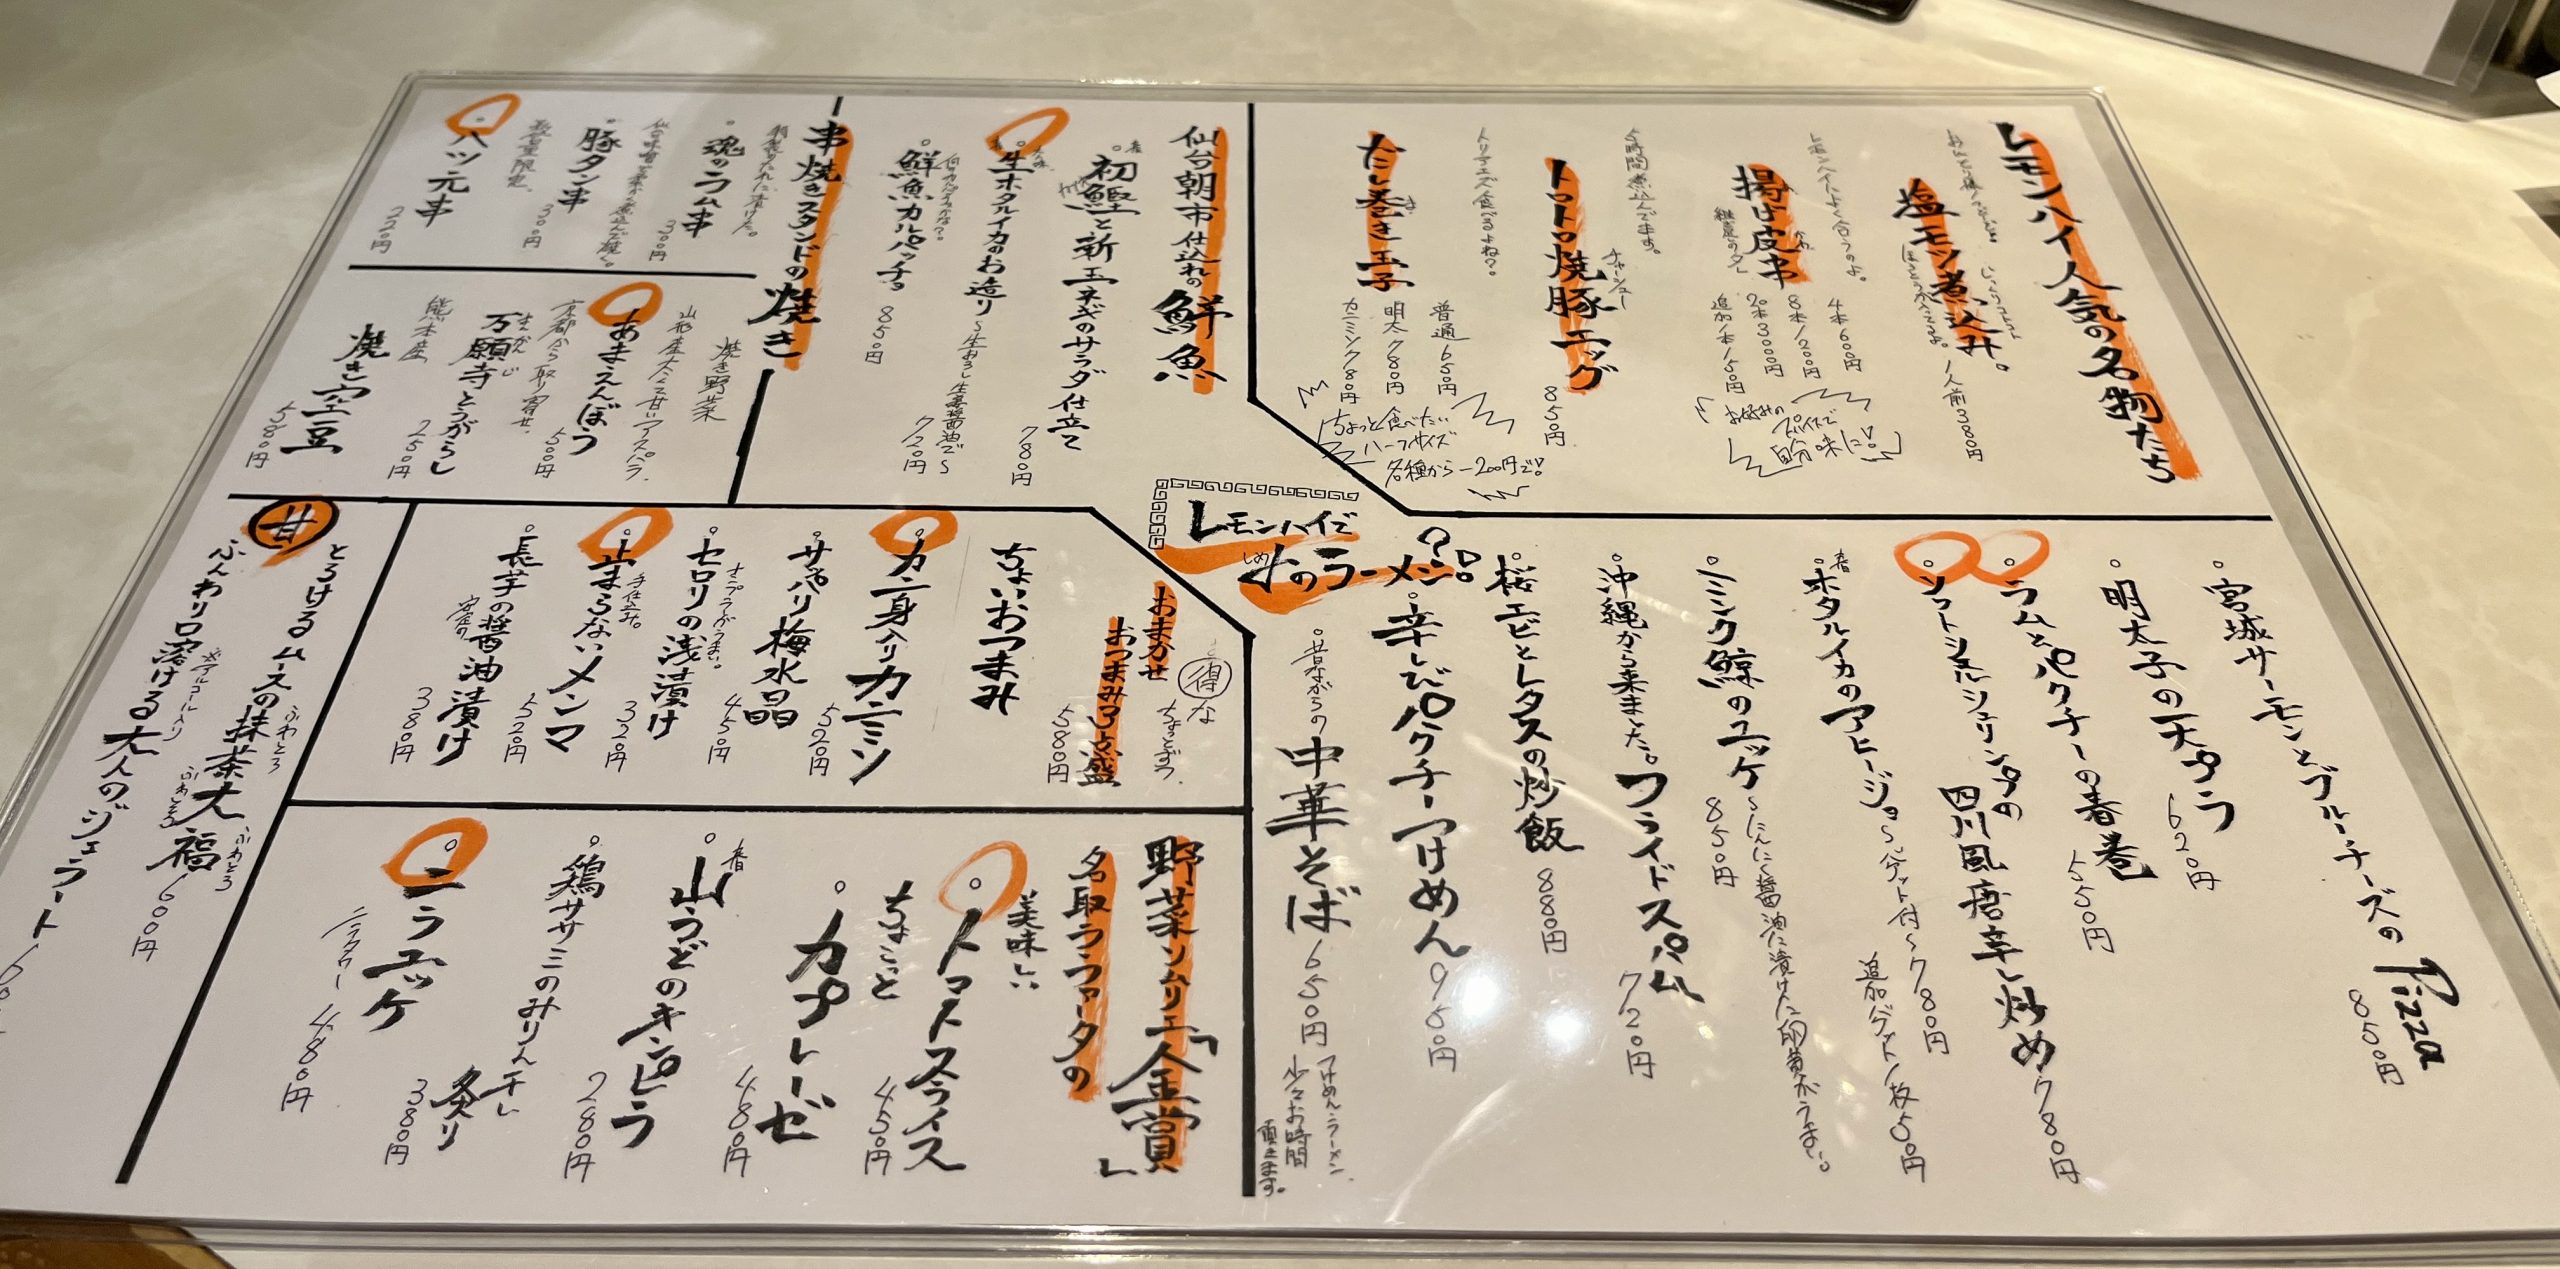 レモンハイ人気の名物たち
塩モツ煮込み。
1人前380円
レモンハイによく合うのよ。
揚げ皮串
かわ
4本600円
8本1200円
2本300円
追加1本150円
お好みの
スパイスで
自分味に!
5時間煮込んでます。
トロトロ焼豚エッグ
チャーシュー
850円
トリアエズ食べるよね?。
だし巻き玉子
普通650円
明太780円
カニミソ
ちょっと食べたい
ハーフサイズ
各種から-200円で!
仙台朝市仕込れの
鮮魚
春
初鰹と新玉ネギのサラダ仕立て
780円
生ホタルイカのお造り
〜生おろし生姜醤油で〜
720円
鮮魚カルパッチョ
850円
串焼きスタンドの焼き
魂のラム串
300円
豚タン串
300円
数量限定。
ハツ元串
220円
焼き野菜
山形産太くて甘いアスパラ
あまえんぼう
500円
京都から取り寄せ。
万願寺とうがらし
まんがんじ
250円
熊本産
焼き空豆
580円
レモンハイで
〆のラーメン?!
しめ
宮城サーモンとブルーチーズのPizza
850円
明太子の天プラ
620円
ラムとパクチーの春巻
550円
ソフトシェルシュリンプの四川風唐辛し炒め780円
春
ホタルイカのアヒージョ
〜バゲット付〜780円
追加バゲット1枚50円
ミンク鯨のユッケ
850円
〜にんにく醤油に漬けた卵黄がうまい。
沖縄から来ました。フライドスパム
720円
桜エビとレタスの炒飯
880円
辛しびパクチーつけめん
950円
昔ながらの中華そば
650円
つけめん・ラーメン
少々お時間
頂きます。
㊝な
ちょっとずつ
おまかせ
おつまみ3点盛
580円
ちょいおつまみ
カニ身入りカニミソ
520円
サッパリ梅水晶
450円
セロリの浅漬け
320円
手仕込み。
止まらないメンマ
520円
長芋の醤油漬け
380円
野菜ソムリエ「金賞」
名取ラフファータの
美味しい
トマトスライス
450円
ちょこっと
カプレーゼ
480円
春
山うどのキンピラ
280円
鶏ササミのみりん干し
炙り
380円
ニラユッケ
480円
甘
とろけるムースの抹茶大福
600円
ふわとろ
ふわとろ
ふわとろ
ふんわり口溶ける大人のジェラート
※アルコール入り